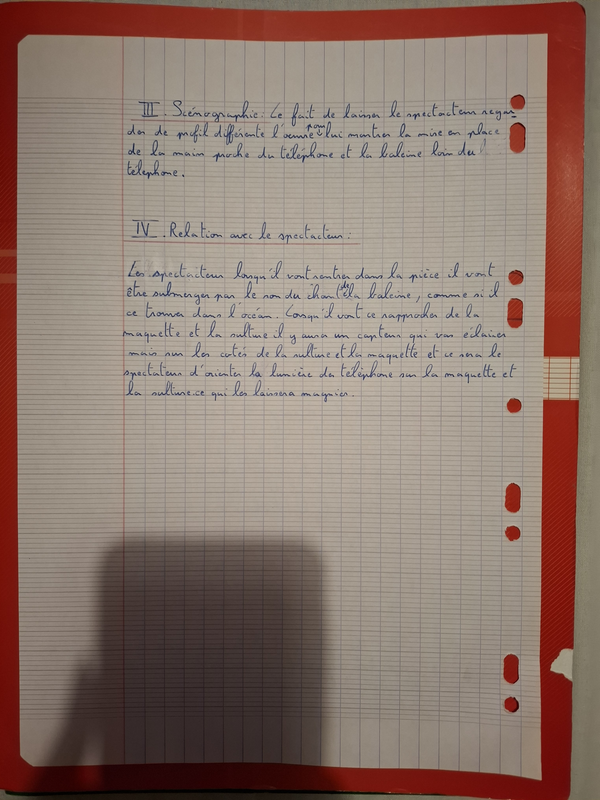 III. Scénographie : Le fait de laisser le spectacteur regar-
der de profil différente l'œuvre pour lui montrer la mise en place
de la main proche du téléphone et la baleine loin du
téléphone.
IV. Relation avec le spectacteur :
Les spectacteur lorsqu'il vont rentrer dans la pièce il vont
être submerger par le son du chant de la baleine, comme si il
ce trouver dans l'océan. Lorsqu'il vont ce rapprocher de la
maquette et la sulture il y aura un capteur qui vas éclairer
mais sur les cotés de la sulture et la maquette et ce sera le
spectateur d'orienter la lumière du téléphone sur la maquette et
la sulture ce qui les laissera